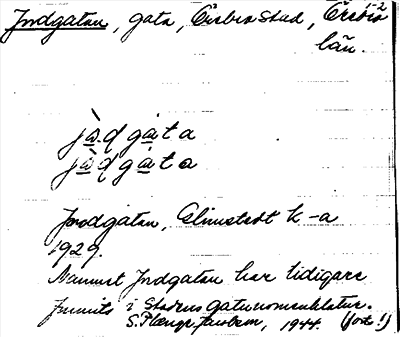 Jndgatan, gata, Örebro stad, Örebro 1-2
län.
jàd gàta
jàd gàta
Jrodgatan, Elmstedt k-a
1929.
Namnet Jndgatan har tidigare
funnits i Stadens gatunomenklatur.
S. 1944. (forts!)